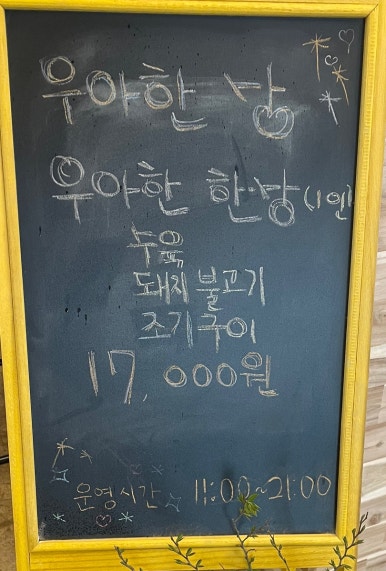 우아한 상
우아한 한상(1인)
수육
돼지불고기
조기구이
17,000원
운영시간 11:00~21:00